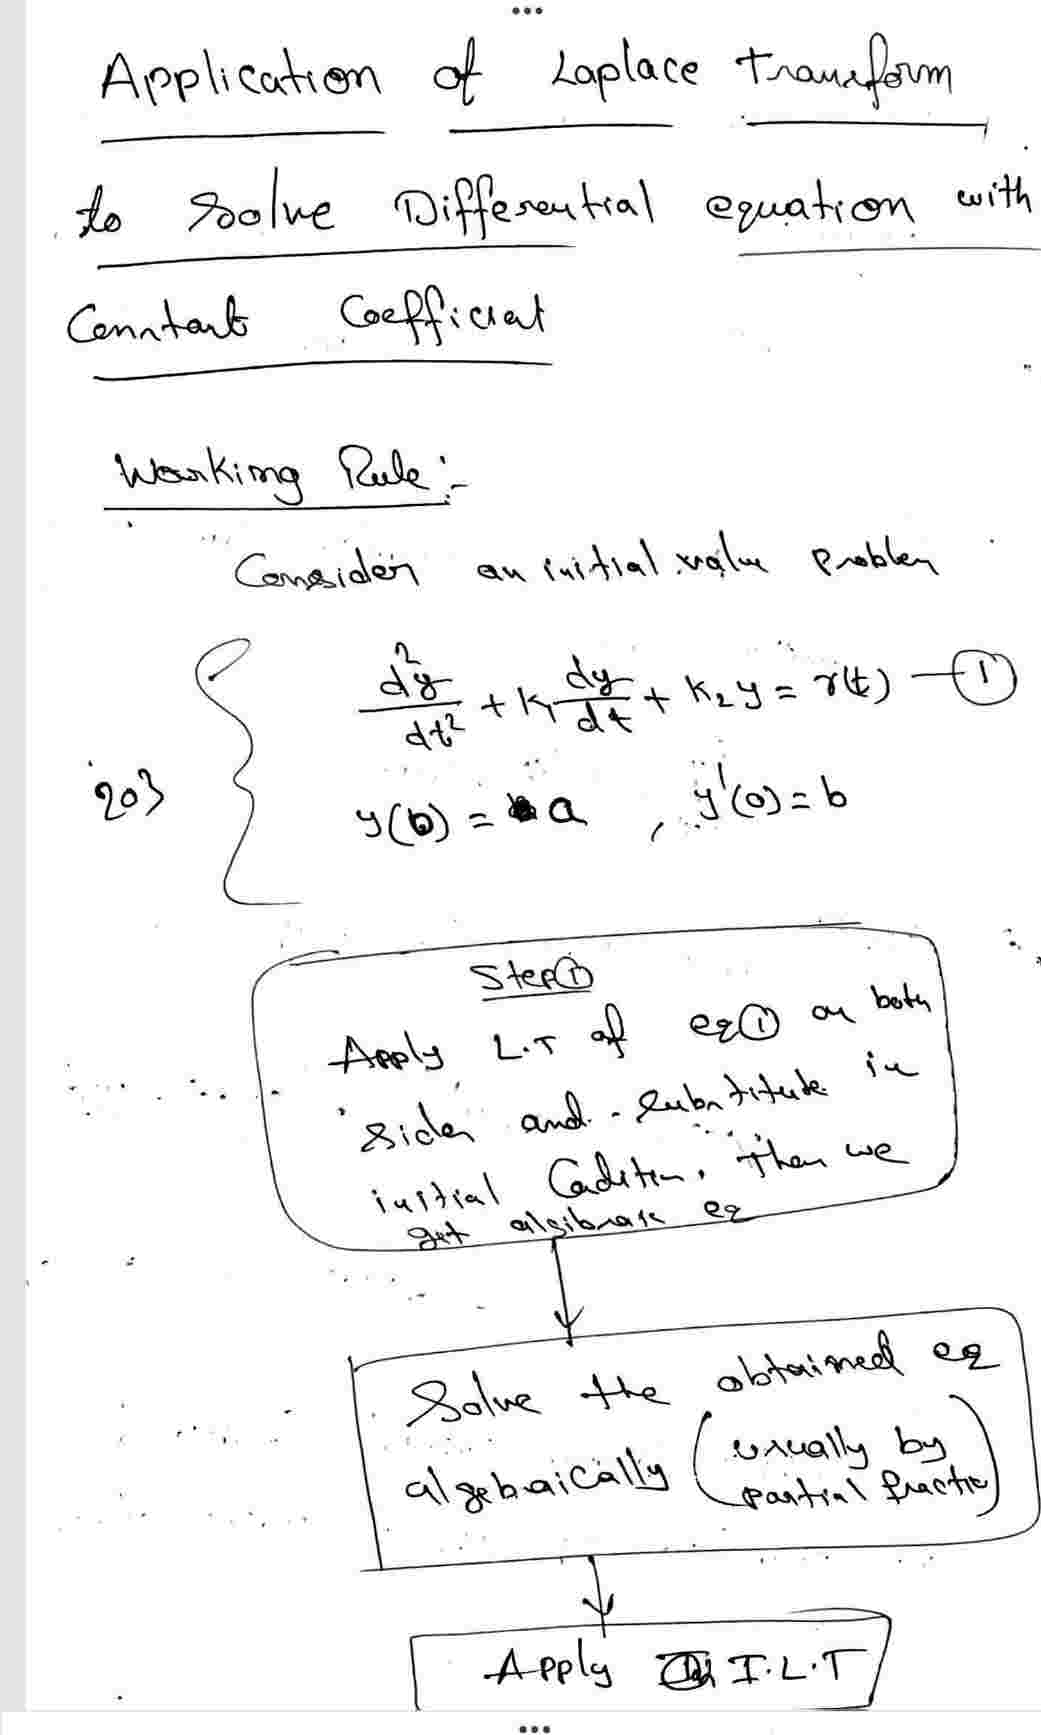 Application of Laplace Transform
to Solve Differential equation with
Constant Coefficient
Working Rule:-
Consider an initial value problem
d²y/dt² + K₁ dy/dt + K₂y = r(t) — ①
203
y(0) = a , y'(0) = b
Step ①
Apply L.T of eq ① on both
sides and substitute in
initial Condition. Then we
get algibraic eq
Solve the obtained eq
algebaically (usually by
partial fractio)
Apply I.L.T